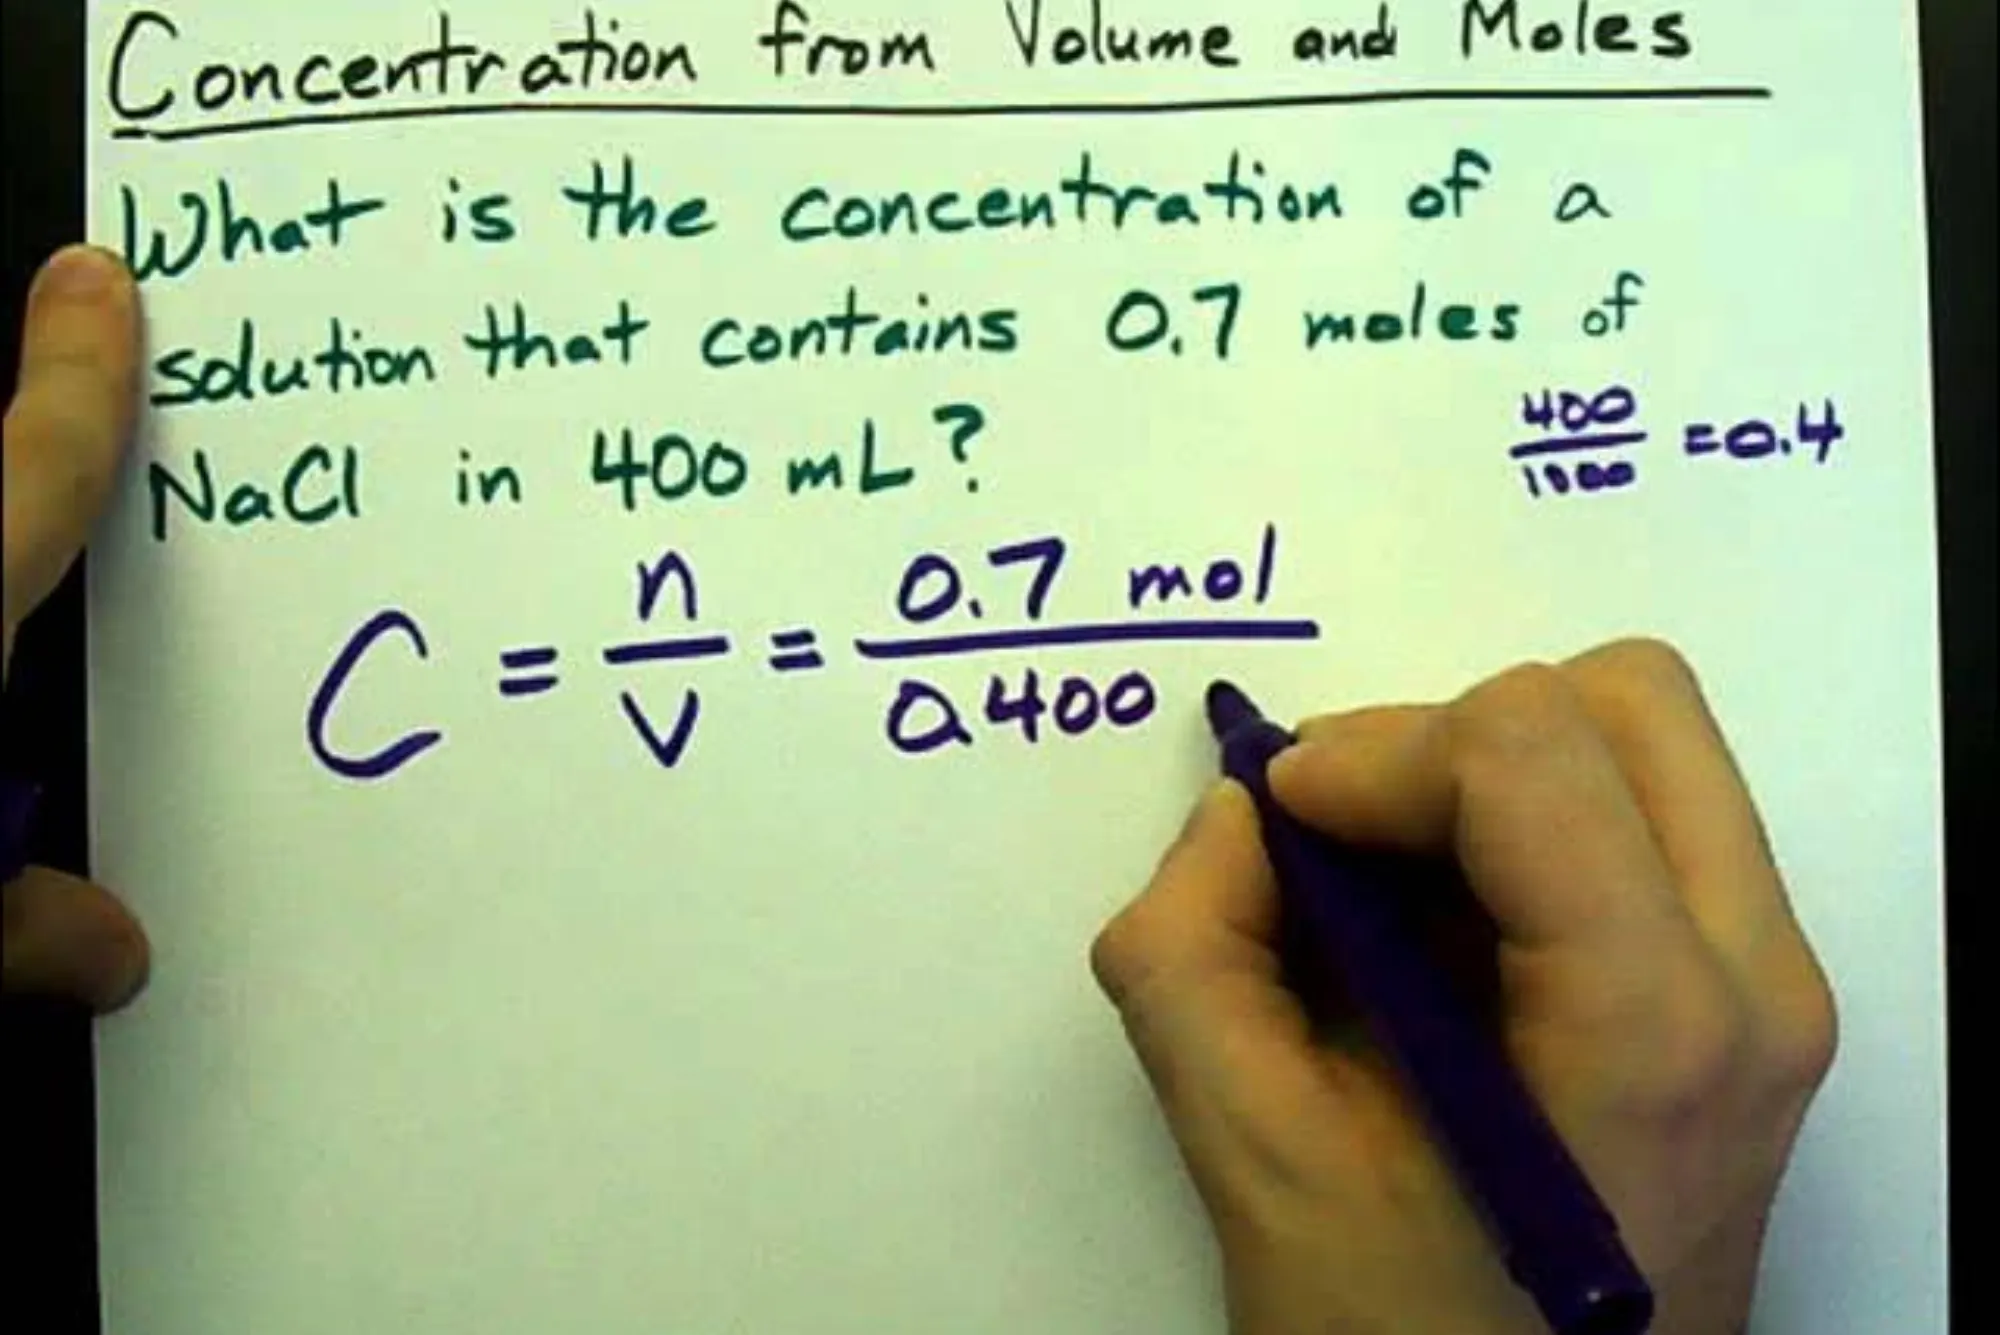 Concentration from Volume and Moles
What is the concentration of a
solution that contains 0.7 moles of
NaCl in 400 mL?
400/1000 = 0.4
C = n/V = 0.7 mol/0.400